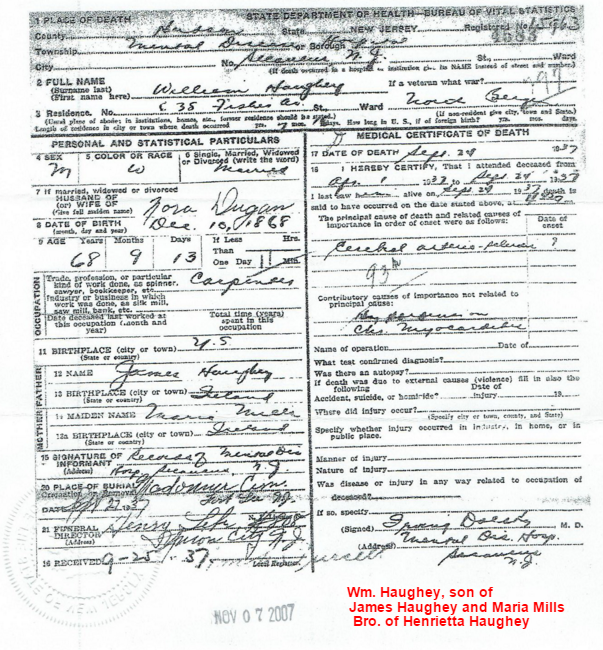 1 PLACE OF DEATH STATE DEPARTMENT OF HEALTH—BUREAU OF VITAL STATISTICS
County Hudson State NEW JERSEY Registered No.
Township Mental or Borough
City No. Secaucus N.J. St., Ward
(If death occurred in a hospital or institution give its NAME instead of street and number.)
2 FULL NAME William Haughey If a veteran what war?
(Surname last)
(First name here)
3 Residence. No. 35 Fisher Av. St., Ward
(Usual place of abode; in institutions, homes, etc., former residence should be stated) (If non-resident give city, town and State.)
Length of residence in city or town where death occurred yrs. mos. days. How long in U. S., if of foreign birth? yrs. mos. days.
PERSONAL AND STATISTICAL PARTICULARS
4 SEX 5 COLOR OR RACE 6 Single, Married, Widowed or Divorced (write the word)
M W Married
7 If married, widowed or divorced
HUSBAND OF
(or) WIFE OF Nora Dugan
(Give full maiden name)
8 DATE OF BIRTH Dec. 10, 1868
(month, day and year)
9 AGE Years Months Days If Less Than One Day Hrs. Min.
68 9 13
OCCUPATION
Trade, profession, or particular kind of work done, as spinner, sawyer, bookkeeper, etc. Carpenter
Industry or business in which work was done, as silk mill, saw mill, bank, etc.
Date deceased last worked at this occupation (month and year)
Total time (years) spent in this occupation
11 BIRTHPLACE (city or town) U.S
(State or country)
FATHER
12 NAME James Haughey
13 BIRTHPLACE (city or town) Ireland
(State or country)
MOTHER
MAIDEN NAME Maria Mills
13a BIRTHPLACE (city or town) Ireland
(State or country)
15 SIGNATURE OF INFORMANT Records of Mental Dis
(Address) Hosp. Secaucus, N.J.
20 PLACE OF BURIAL Madonna Cem.
Cremation or Removal Fort Lee N.J.
DATE
21 FUNERAL DIRECTOR Henry
(Address) Union City N.J.
16 RECEIVED 9-25-37 Local Registrar.
MEDICAL CERTIFICATE OF DEATH
17 DATE OF DEATH Sept. 24 1937
18 I HEREBY CERTIFY, That I attended deceased from
1 1937 to Sept 24 1937
I last saw alive on Sept. 24 1937 death is
said to have occurred on the date stated above, at
The principal cause of death and related causes of importance in order of onset were as follows:
Date of onset
Cerebral arterio-sclerosis ?
Contributory causes of importance not related to principal cause:
Chr. Myocarditis
Name of operation Date of
What test confirmed diagnosis?
Was there an autopsy?
If death was due to external causes (violence) fill in also the following Date of
Accident, suicide, or homicide? injury 19
Where did injury occur?
(Specify city or town, county, and State)
Specify whether injury occurred in industry, in home, or in public place.
Manner of injury
Nature of injury
Was disease or injury in any way related to occupation of
deceased?
If so, specify
(Signed) Irving M. D.
(Address) Mental Dis. Hosp.
Secaucus
N.J.
NOV 07 2007
Wm. Haughey, son of
James Haughey and Maria Mills
Bro. of Henrietta Haughey